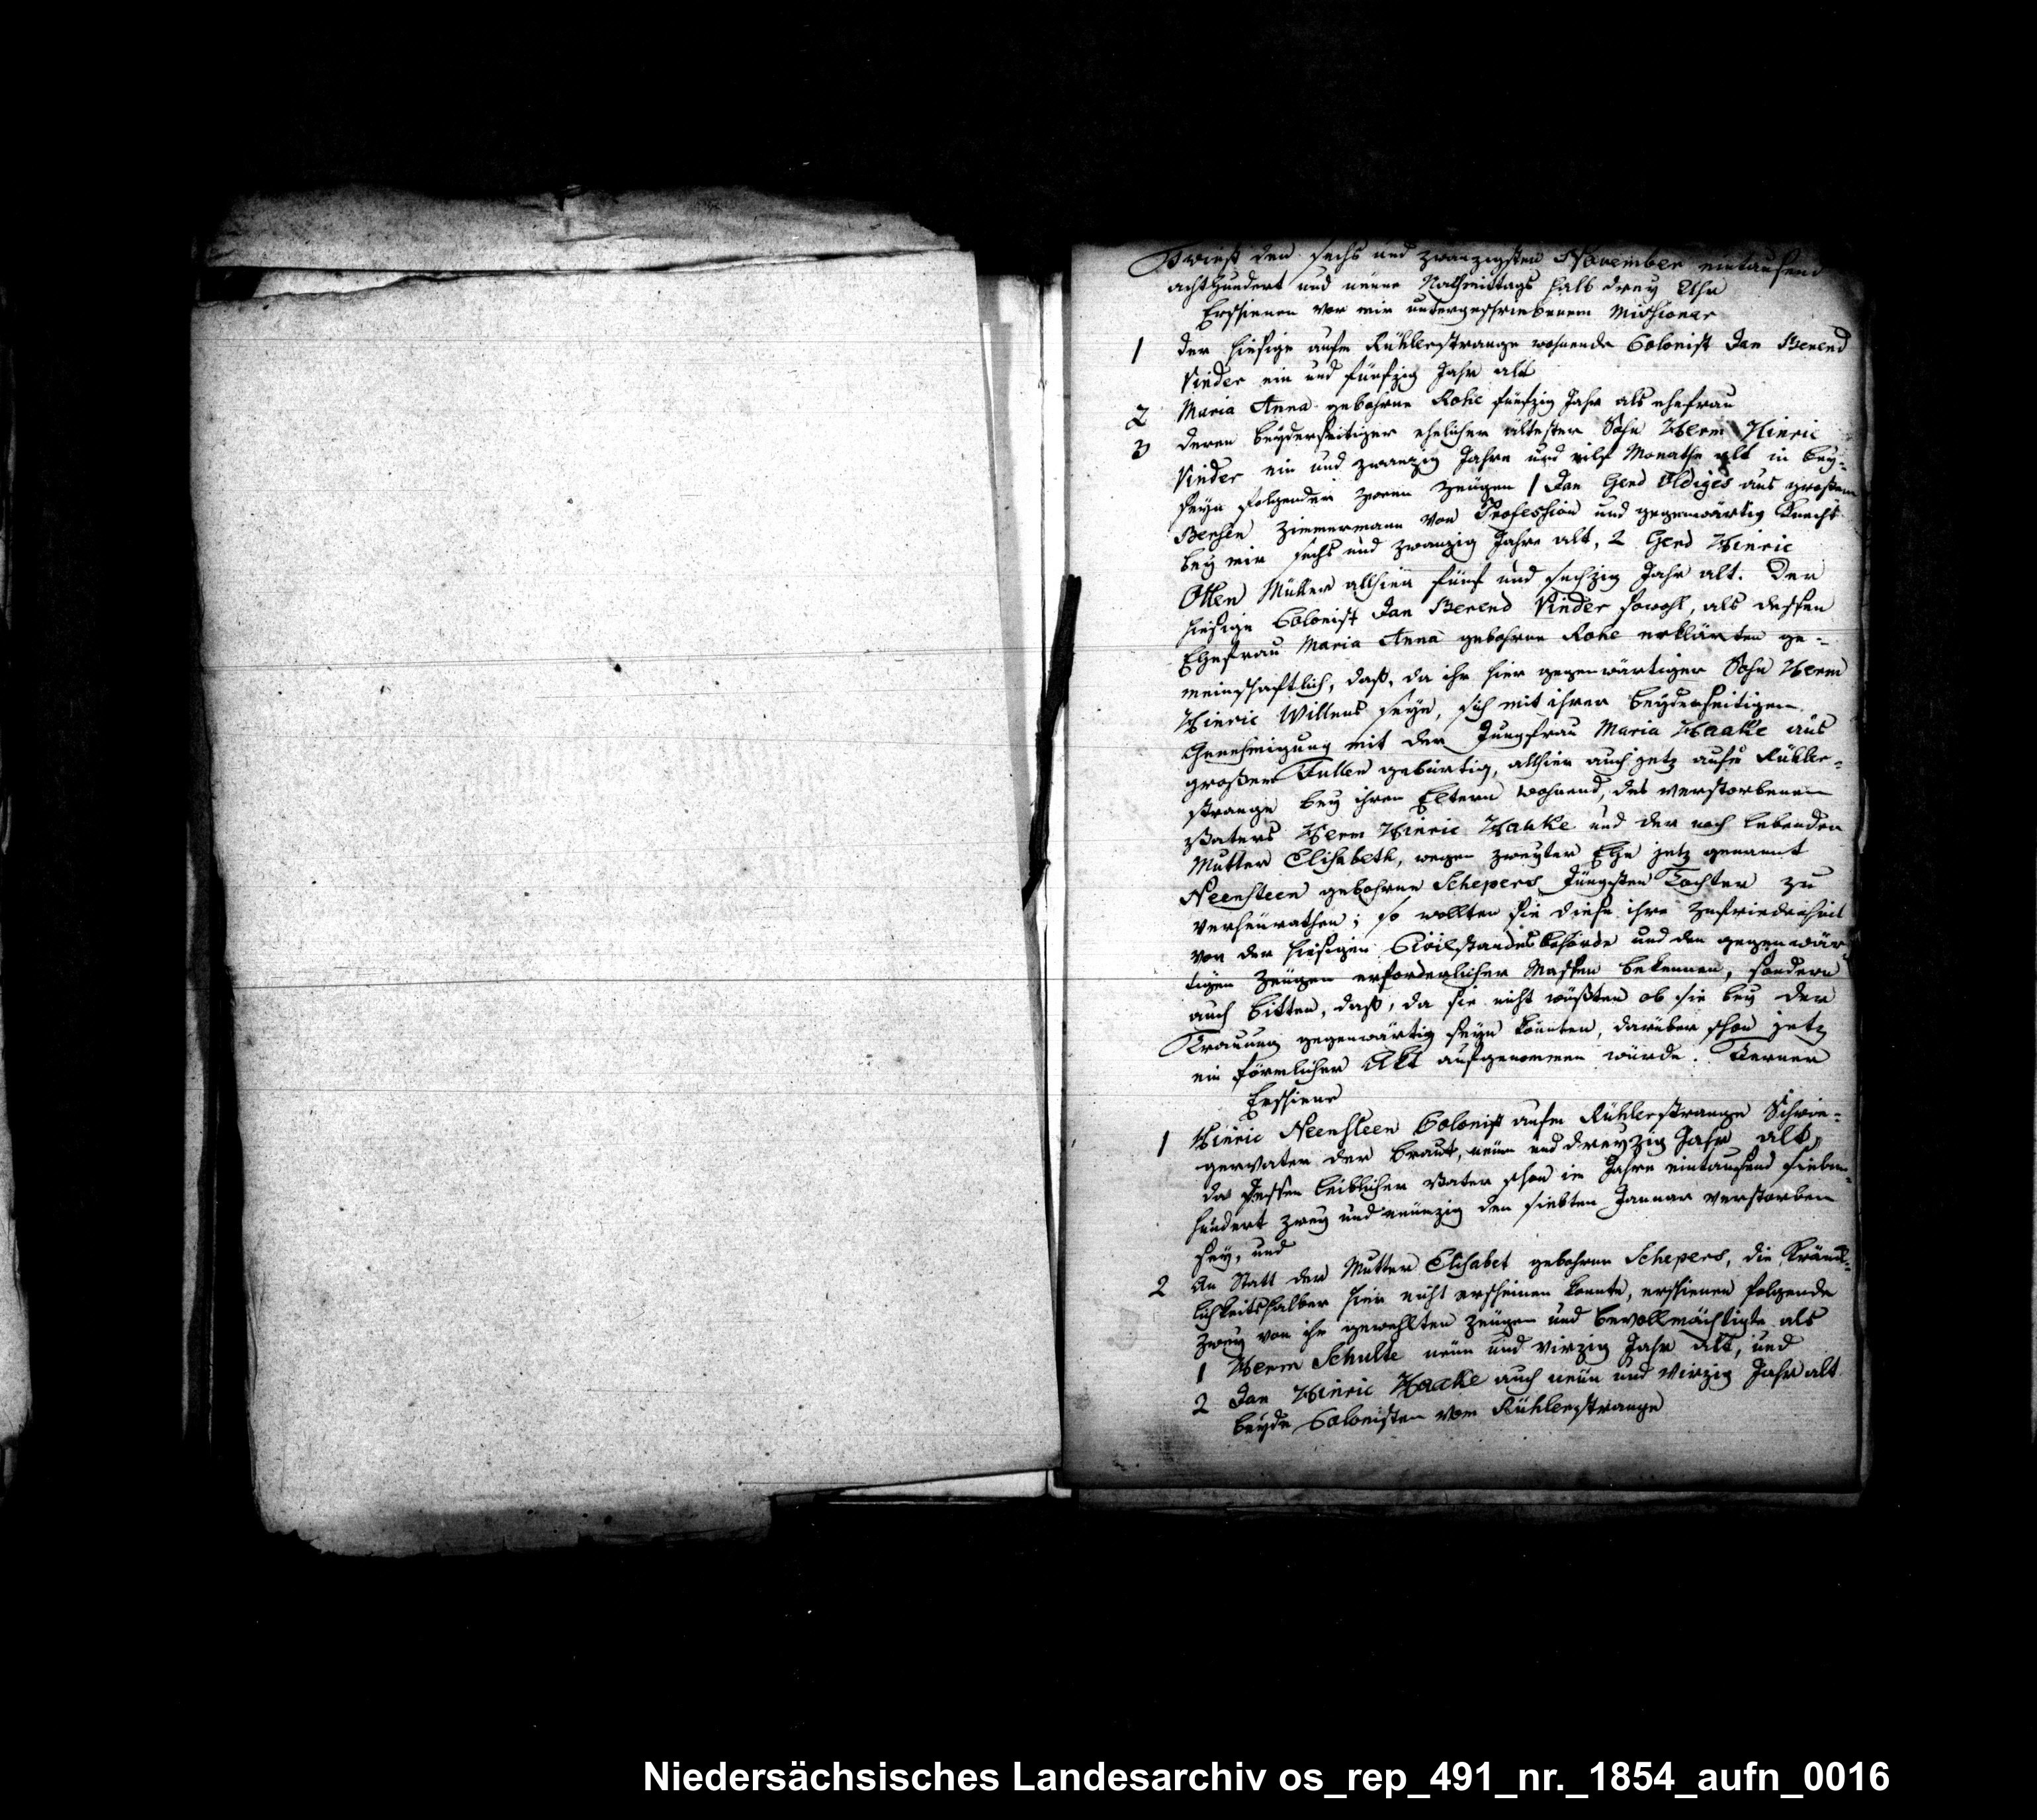 Twist den sechs und zwanzigsten November eintausend
achthundert und neune Nachmittags halb drey Uhr
Erschienen vor mir untergeschriebenem Missionar
1 der hiesige aufm Rühlerstrange wohnende Colonist Jan Berend
Vinder ein und fünfzig Jahr alt
2 Maria Anna gebohrne Rohe fünfzig Jahr als ehefrau
3 deren beyderseitiger ehelicher ältester Sohn Herm Hinric
Vinder ein und zwanzig Jahre und eilf Monathe alt in bey-
seyn folgender zween Zeugen 1 Jan Gerd Oldiges aus großem
Bersen Zimmermann von Profession und gegenwärtig Knecht
bey mir sechs und zwanzig Jahre alt, 2 Gerd Hinric
Otten Müller allhier fünf und sechzig Jahr alt. Der
hiesige Colonist Jan Berend Vinder sowohl, als dessen
Ehefrau Maria Anna gebohrne Rohe erklärten ge-
meinschaftlich, daß, da ihr hier gegenwärtiger Sohn Herm
Hinric Willens seye, sich mit ihrer beyderseitigen
Genehmigung mit der Jungfrau Maria Haake aus
großen Fullen gebürtig, allhier auch jetz aufm Rühler-
strange bey ihren Eltern wohnend, des verstorbenen
Vaters Herm Hinric Haake und der noch lebenden
Mutter Elisabeth, wegen zweyter Ehe jetz genannt
Neensteen gebohrne Schepers jüngsten Tochter zu
verheurathen; so wollten sie diese ihre Zufriedenheit
vor der hiesigen Civilstandesbehörde und den gegenwär
tigen Zeugen erforderlicher Massen bekennen, sondern
auch bitten, daß, da sie nicht wüßten ob sie bey der
Trauung gegenwärtig seyn könnten, darüber schon jetz
ein förmlicher Akt aufgenommen würde. Ferner
Erschiene
1 Hinric Neensteen Colonist aufm Rühlerstrange Schwie-
gervater der Braut, neun und dreyzig Jahr alt,
da dessen leiblicher Vater schon im Jahre eintausend sieben-
hundert zwey und neunzig den siebten Januar verstorben
sey, und
2 An Statt der Mutter Elisabet gebohrne Schepers, die Kränk-
lichkeitshalber hier nicht erscheinen konnte, erschienen folgende
zwey von ihr gewehlten Zeugen und bevollmächtigte als
1 Herm Schulte neun und virzig Jahr alt, und
2 Jan Hinric Haake auch neun und virzig Jahr alt
beyde Colonisten vom Rühlerstrange
Niedersächsisches Landesarchiv os_rep_491_nr._1854_aufn_0016